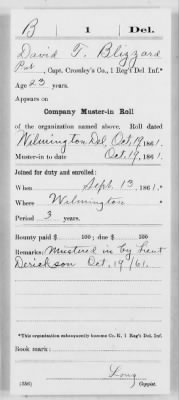 B | 1 | Del.
David T. Blizzard
Pvt, Capt. Crossley's Co., 1 Reg't Del. Inf.*
Age 23 years.
Appears on
Company Muster-in Roll
of the organization named above. Roll dated
Wilmington Del, Oct. 19, 1861.
Muster-in to date Oct. 19, 1861.
Joined for duty and enrolled:
When Sept. 13, 1861.*
Where Wilmington
Period 3 years.
Bounty paid $ 100; due $ 100
Remarks: Mustered in by Lieut
Derickson Oct. 19/61.
*This organization subsequently became Co. K, 1 Reg't Del. Inf.
Book mark:
Long
(356) Copyist.